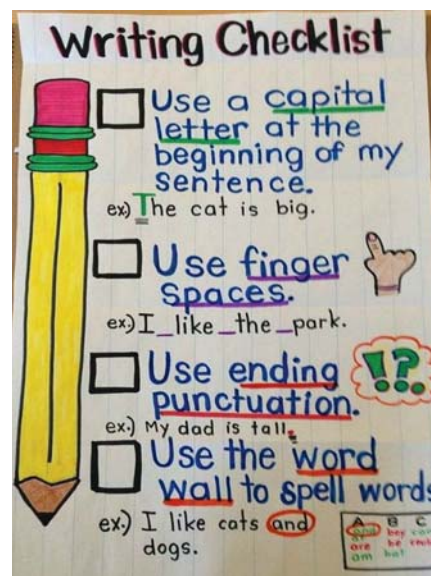 Writing Checklist
Use a capital
letter at the
beginning of my
sentence.
ex.) The cat is big.
Use finger
spaces.
ex.) I _like _the _park.
Use ending
punctuation.
!?.
ex.) My dad is tall.
Use the word
wall to spell words
ex.) I like cats and
dogs.
A B C
and
at
are be
am